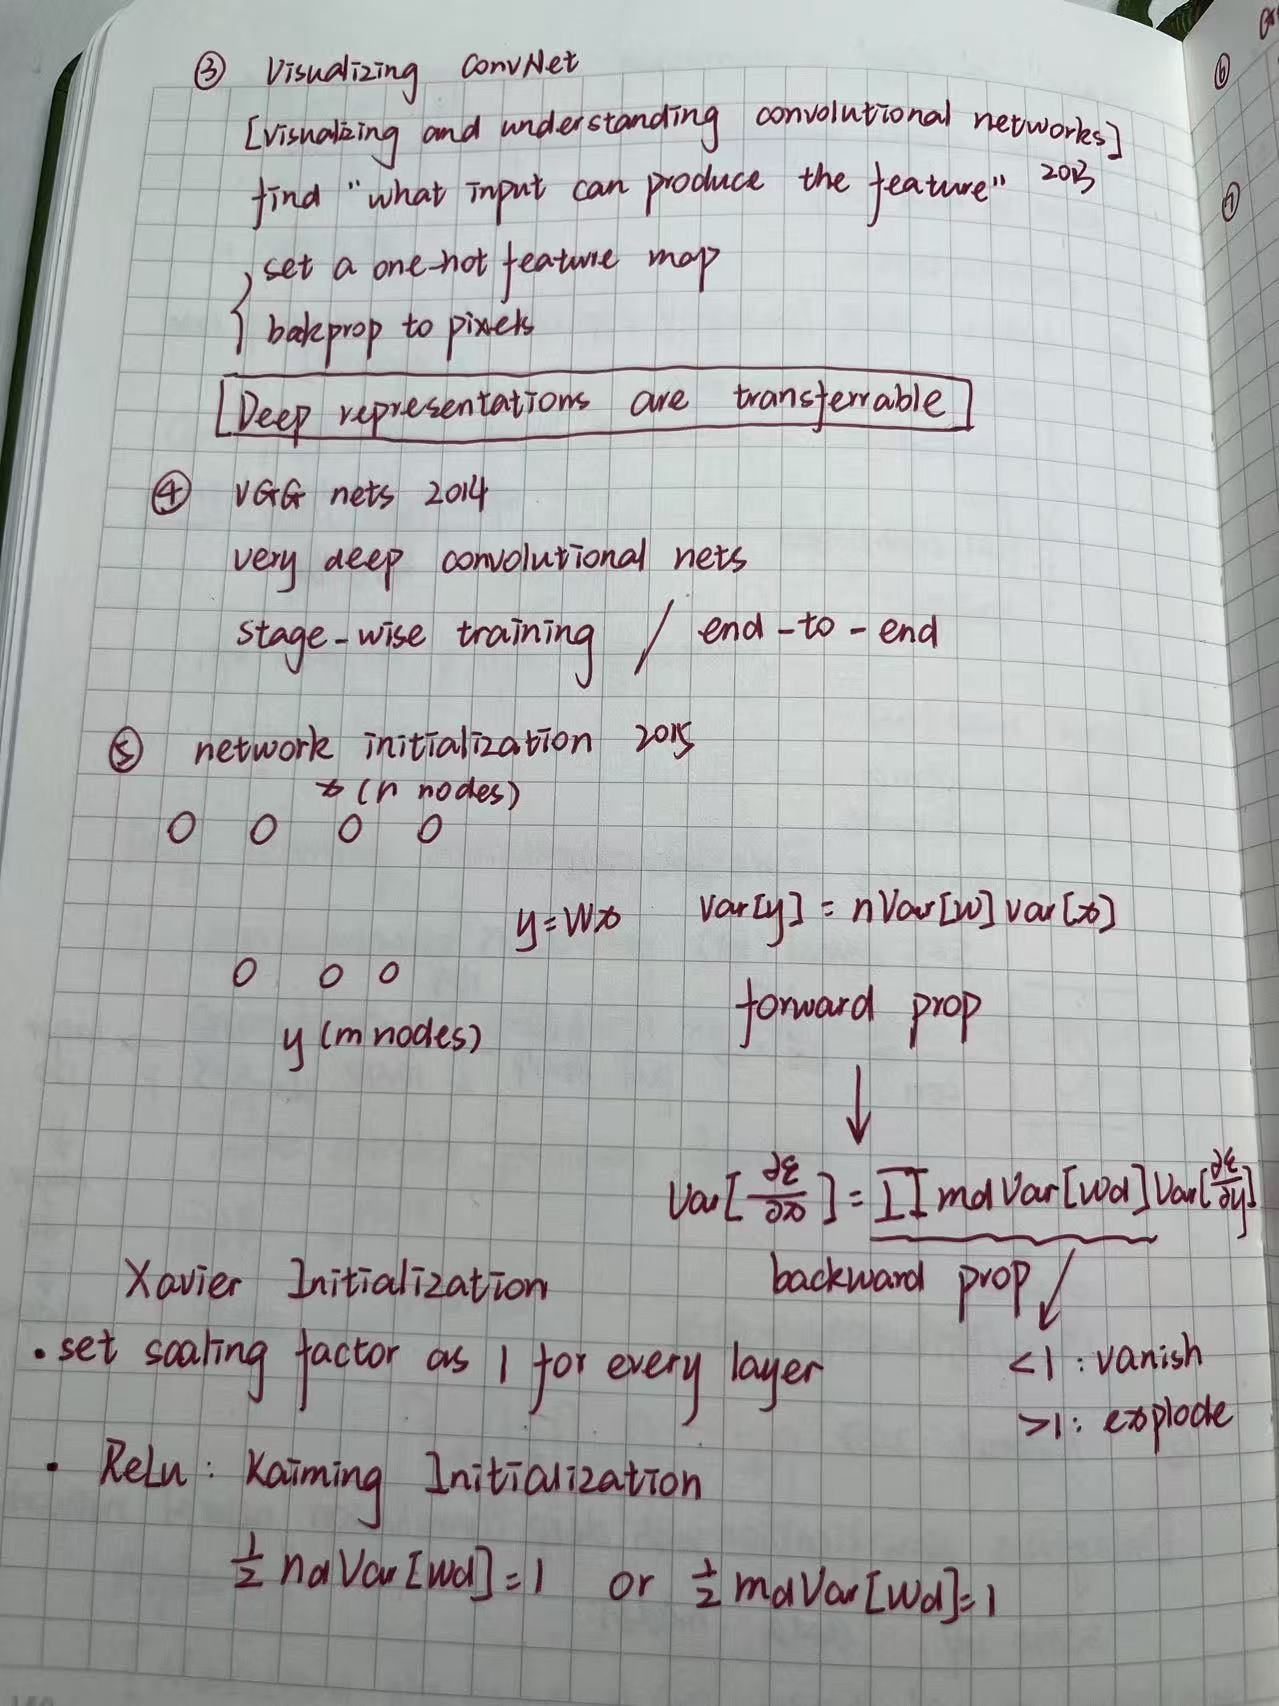 ③ Visualizing ConvNet
[visualizing and understanding convolutional networks]
find "what input can produce the feature" 2013
set a one-hot feature map
bakprop to pixels
Deep representations are transferrable
④ VGG nets 2014
very deep convolutional nets
stage-wise training / end-to-end
⑤ network initialization 2015
x (n nodes)
y=Wx Var[y] = nVar[w] var[x]
forward prop
y (m nodes)
Var[∂ε/∂x] = ∏ md Var[wd] Var[∂ε/∂y]
Xavier Initialization
backward prop
• set scaling factor as 1 for every layer
<1: vanish
>1: explode
• ReLu: Kaiming Initialization
1/2 nd Var[wd] = 1 or 1/2 md Var[wd] = 1
⑥
⑦